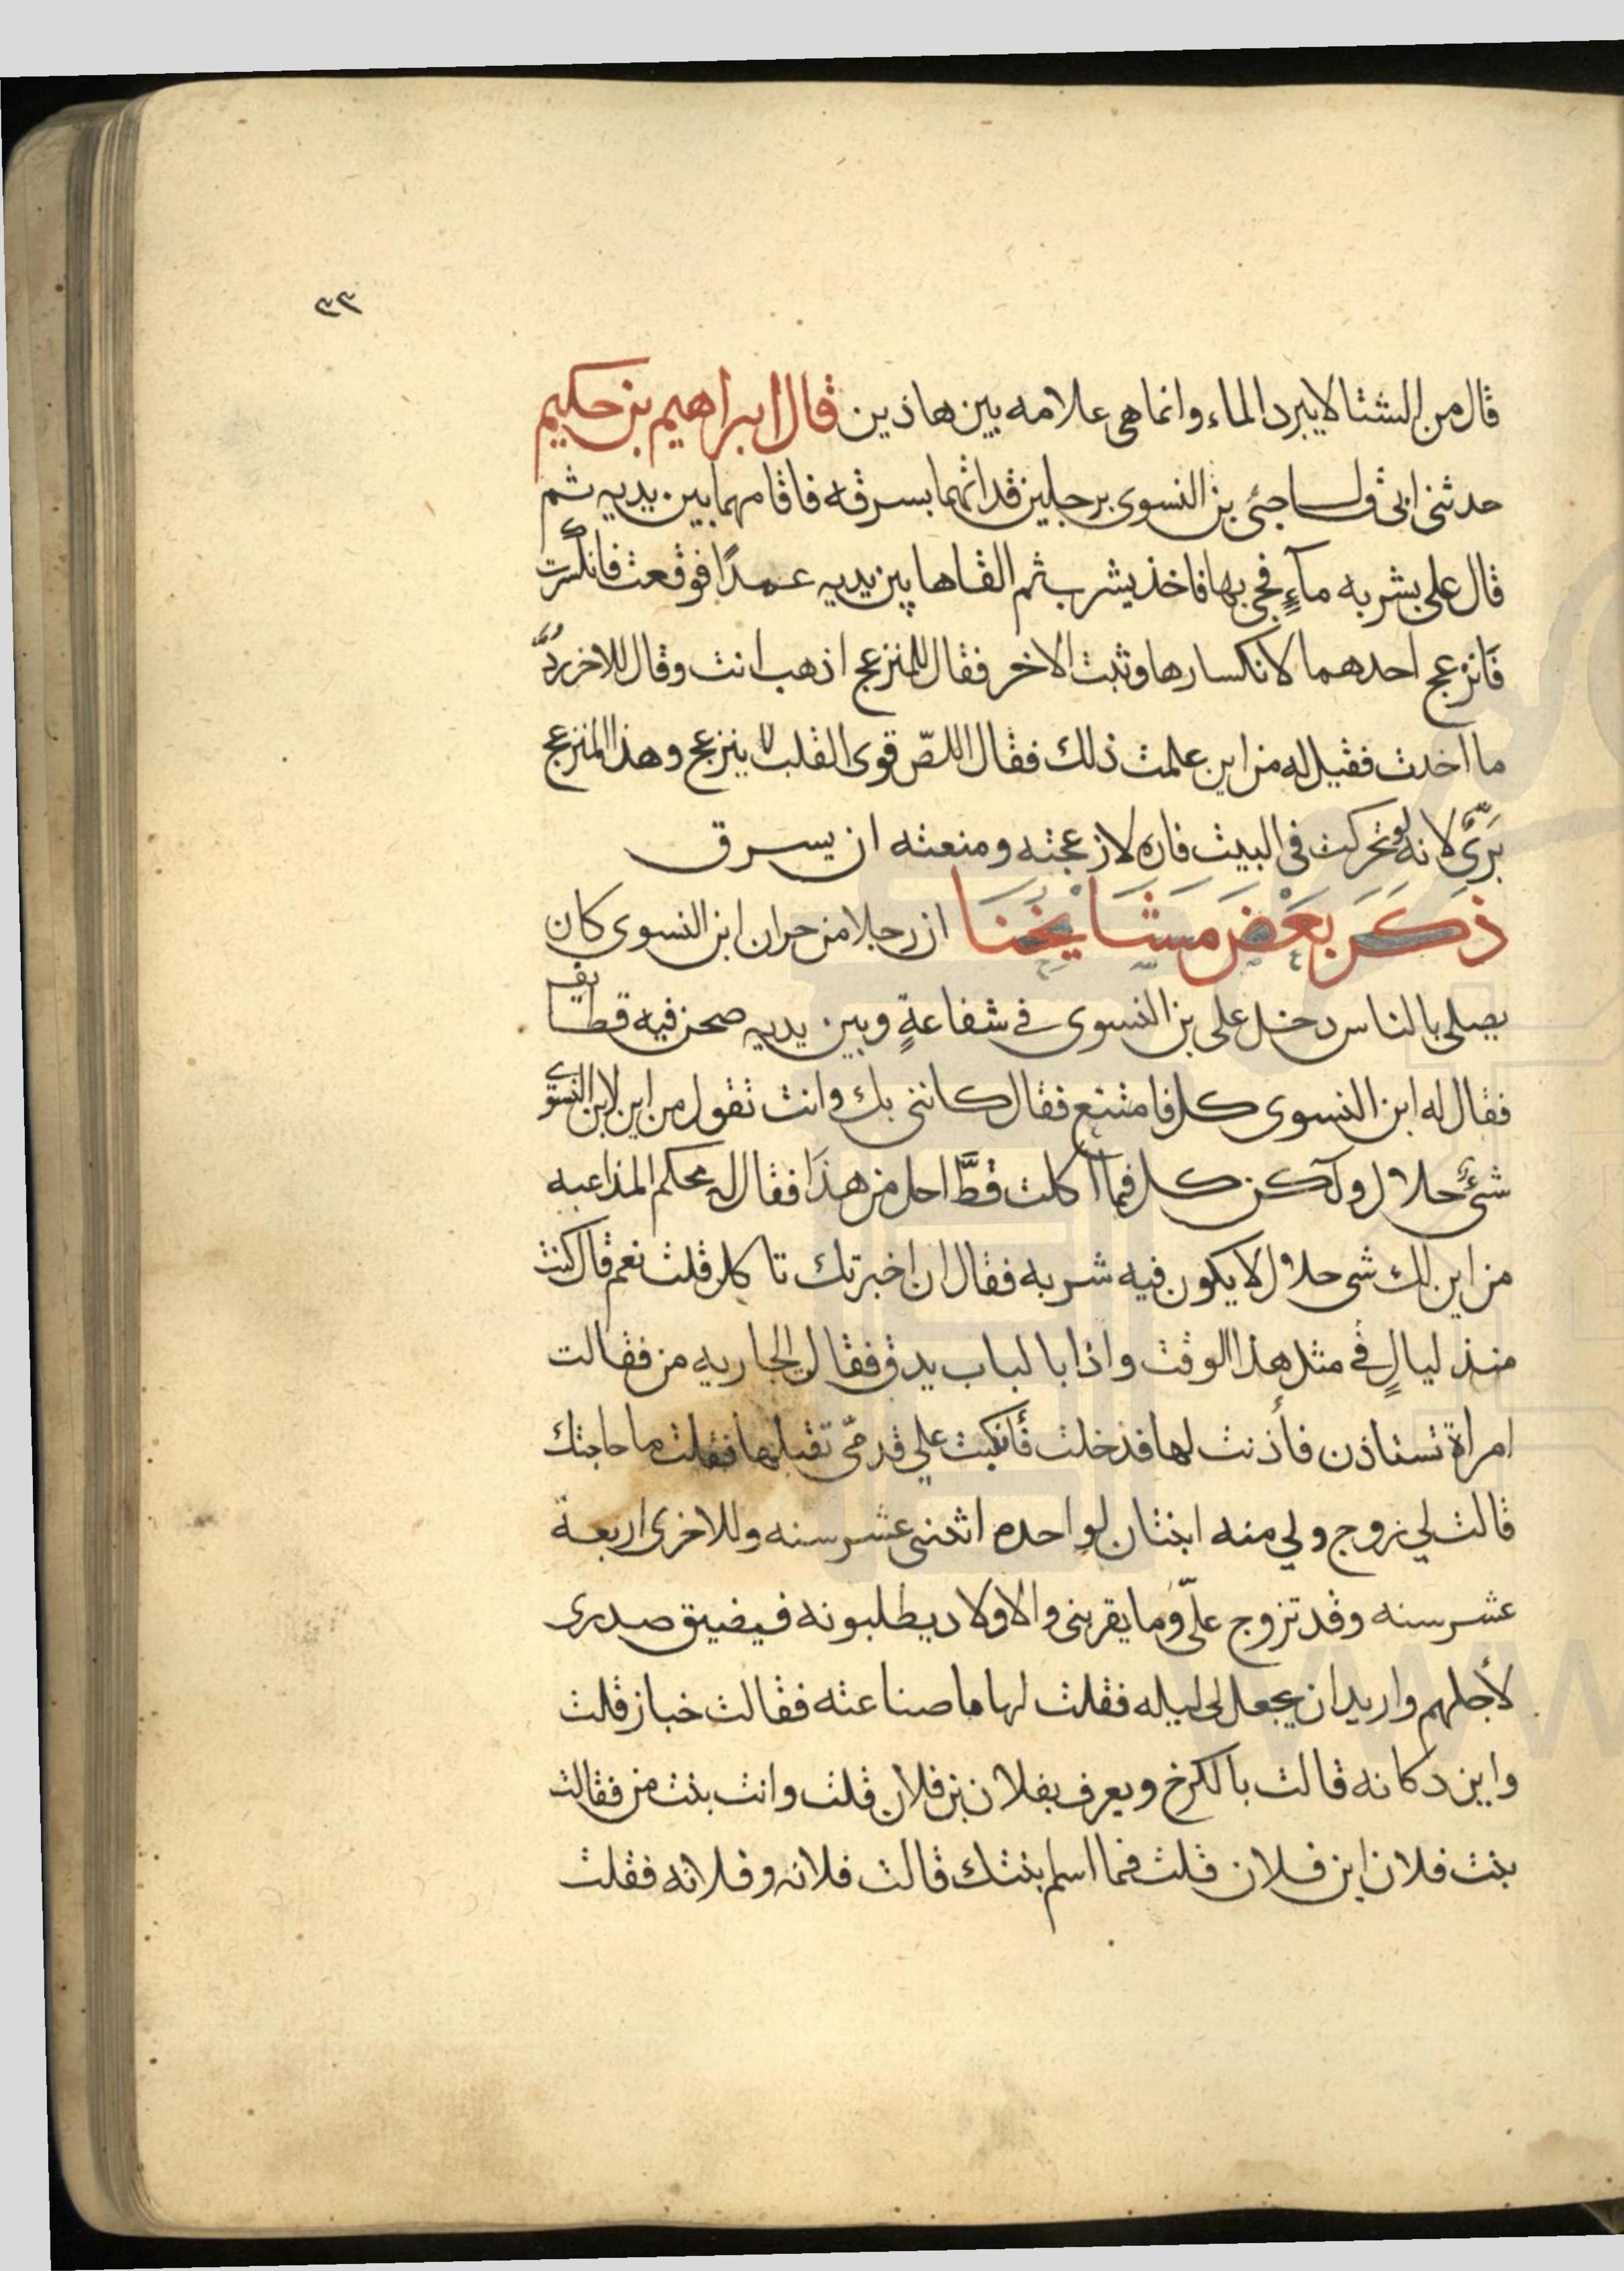 ٣٣
قال من الشتا لا يبرد الماء وانما هي علامه بين هاذين قال ابراهيم بن حكيم
حدثني ابي قال جئ بن النسوي برجلين قد اتهما بسرقه فاقامهما بين يديه ثم
قال علي بشربه مآءٍ فجي بها فاخذ يشرب ثم القاها بين يديه عمدًا فوقعت فانكسرت
فَانزعج احدهما لانكسارها وثبت الاخر فقال للمنزعج اذهب انت وقال للاخر ردَّ
ما اخدت فقيل له من اين علمت ذلك فقال اللصّ قوي القلب لا ينزعج وهذا المنزعج
بَرّي لانه لو تحركت في البيت فاره لازعجته ومنعته ان يسرق
ذَكَرَ بَعْضَ مَشَايخُنَا ان رجلا من جران ابن النسوي كان
يصلي بالناس دخل علي بن النسوي في شفاعةٍ وبين يديه صحن فيه قطايف
فقال له ابن النسوي كل فامتنع فقال كانني بك وانت تقول من اين لابن النسوي
شئٌ حلال ولكن كل فما اكلت قطَّ احل من هذَا فقال له محكم المذاعبه
من اين لك شي حلال لا يكون فيه شربه فقال ان اخبرتك تاكل قلت نعم قال كنت
منذ ليالٍ في مثل هذا الوقت واذا بالباب يدق فقال الجاريه من فقالت
امراة تستاذن فأذنت لها فدخلت فأنكبت علي قدميّ تقبلها فقلت ما حاجتك
قالت لي زوج ولي منه ابنتان لواحده اثنني عشر سنه وللاخرى اربعة
عشر سنه وقد تزوج عليّ وما يقربني والاولاد يطلبونه فيضيق صدري
لأجلهم واريد ان يجعل لي ليله فقلت لها ما صناعته فقالت خباز قلت
واين دكانه قالت بالكرخ ويعرف بفلان بن فلان قلت وانت بنت من فقالت
بنت فلان ابن فلان قلت فما اسم بنتك قالت فلانه وفلانه فقلت